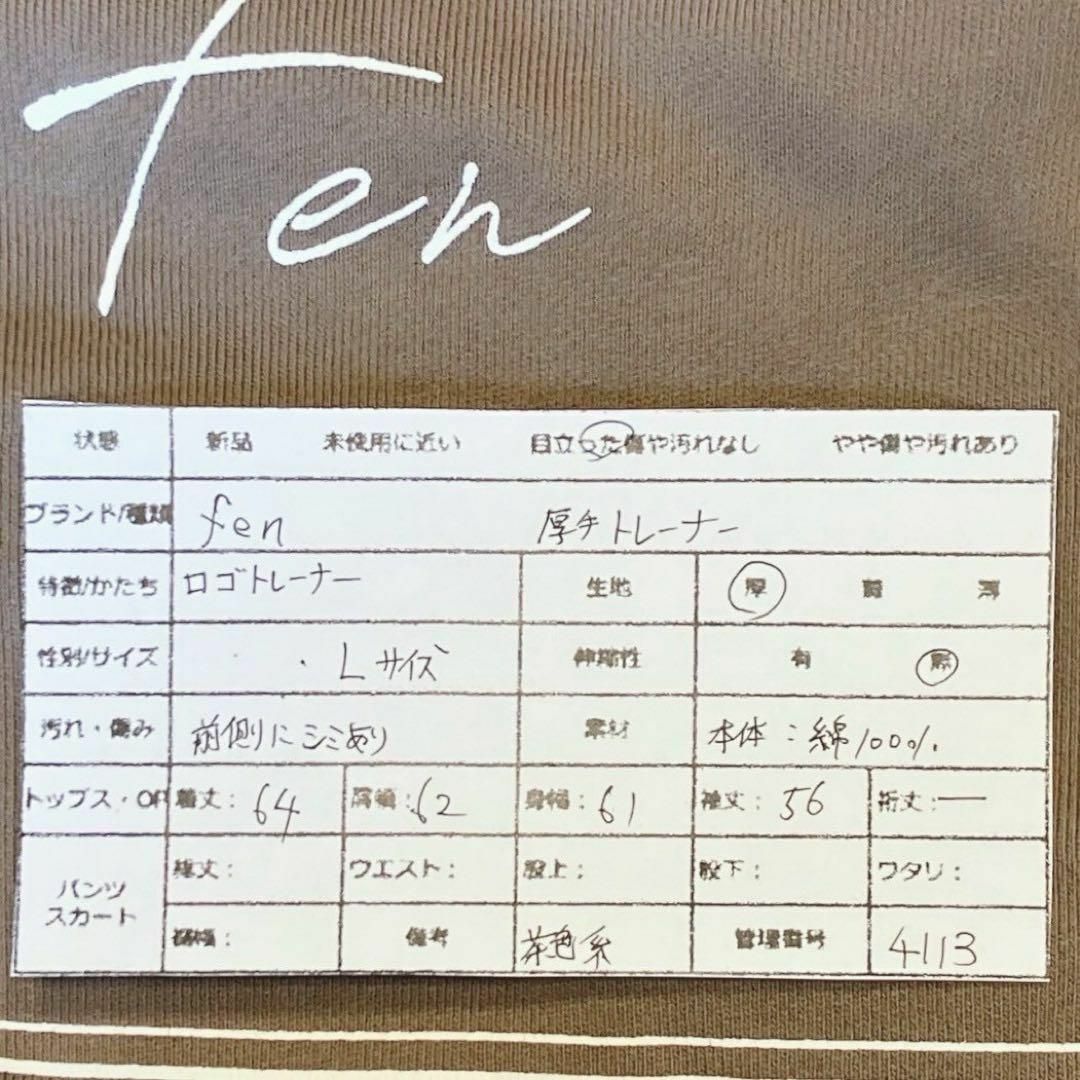 fen
状態 新品 未使用に近い 目立った傷や汚れなし やや傷や汚れあり
ブランド/種類 fen 厚手トレーナー
特徴/かたち ロゴトレーナー 生地 厚 普 薄
性別/サイズ ・Lサイズ 伸縮性 有 無
汚れ・傷み 前側にシミあり 素材 本体:綿100%
トップス・OP 着丈:64 肩幅:62 身幅:61 袖丈:56 裄丈:ー
パンツ
スカート
総丈: ウエスト: 股上: 股下: ワタリ:
裾幅: 備考 茶色系 管理番号 4113